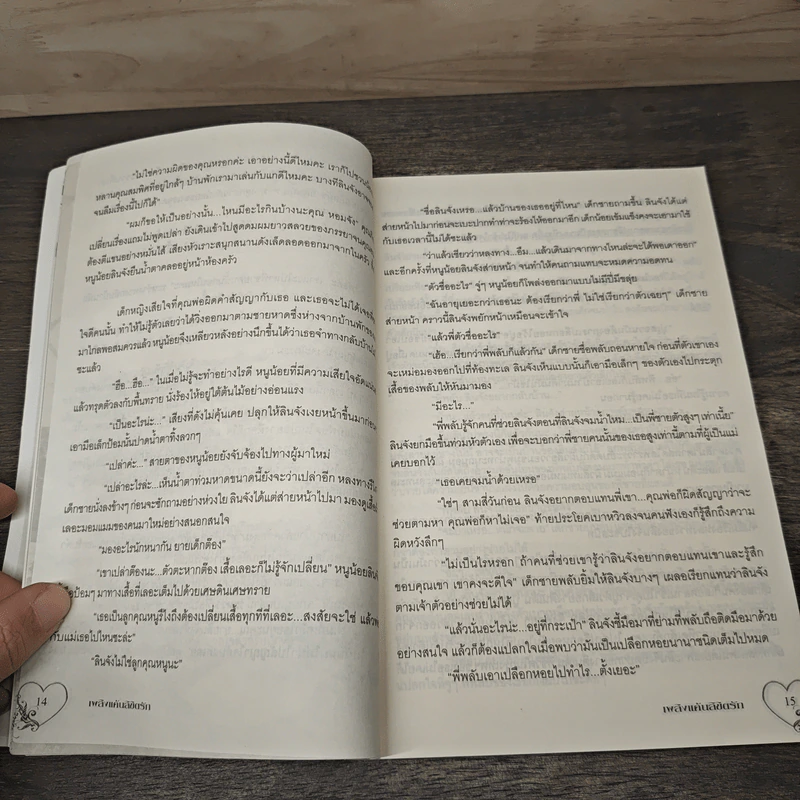 "ไม่ใช่ความผิดของคุณหรอกค่ะ เอาอย่างนี้ดีไหมคะ เราก็ไปชวน
หลานคุณสมพิศที่อยู่ใกล้ๆ บ้านพักเรามาเล่นกับแกดีไหมคะ บางทีลินจังอาจ
จนลืมเรื่องนี้ไปก็ได้"
"ผมก็ขอให้เป็นอย่างนั้น...ไหนมีอะไรกินบ้างนะคุณ หอมจัง"
เปลี่ยนเรื่องแถมไม่พูดเปล่า ยังเดินเข้าไปสูดดมผมยาวสลวยของภรรยาจน
ต้องตีแขนอย่างหมั่นไส้ เสียงหัวเราะสนุกสนานดังเล็ดลอดออกมาจากในครัว
หนูน้อยลินจังยืนน้ำตาคลออยู่หน้าห้องครัว
เด็กหญิงเสียใจที่คุณพ่อผิดคำสัญญากับเธอ และเธอจะไม่ได้เจอ
ใจดีคนนั้น ทำให้ไม่รู้ตัวเลยว่าได้วิ่งออกมาตามชายหาดซึ่งห่างจากบ้านพัก
มาไกลพอสมควรแล้ว หนูน้อยจึงเหลียวหลังอย่างนึกขึ้นได้ว่าเธอจำทางกลับบ้าน
ซะแล้ว
"ฮือ...ฮือ..." ในเมื่อไม่รู้จะทำอย่างไรดี หนูน้อยที่มีความเสียใจอัดแน่น
แล้วทรุดตัวลงกับพื้นทราย นั่งร้องไห้อยู่ใต้ต้นไม้อย่างอ่อนแรง
"เป็นอะไรน่ะ..." เสียงที่ดังไม่คุ้นเคย ปลุกให้ลินจังเงยหน้าขึ้นมาก่อน
เอามือเล็กป้อมนั้นปาดน้ำตาทิ้งลวกๆ
"เปล่าค่ะ..." สายตาของหนูน้อยยังจับจ้องไปทางผู้มาใหม่
"เปล่าอะไรล่ะ...เห็นน้ำตาท่วมหาดขนาดนี้ยังจะว่าเปล่าอีก หลงทางรึไง
เด็กชายนั่งลงข้างๆ ก่อนจะซักถามอย่างห่วงใย ลินจังได้แต่ส่ายหน้าไปมา มองดูเสื้อ
เลอะมอมแมมของคนมาใหม่อย่างสนอกสนใจ
"มองอะไรนักหนากัน ยายเด็กต๊อง"
"เขาเปล่าต๊องนะ...ตัวตะหากต๊อง เสื้อเลอะก็ไม่รู้จักเปลี่ยน" หนูน้อย
ป้อมๆ มาทางเสื้อที่เลอะเต็มไปด้วยเศษดินเศษทราย
"เธอเป็นลูกคุณหนูรึไงถึงต้องเปลี่ยนเสื้อทุกทีที่เลอะ...สงสัยจะใช่ แล้ว
กับแม่เธอไปไหนซะล่ะ"
"ลินจังไม่ใช่ลูกคุณหนูนะ"
14
เพลิงแค้นลิขิตรัก
"ชื่อลินจังเหรอ...แล้วบ้านของเธออยู่ที่ไหน" เด็กชายถามขึ้น ลินจังได้แต่
ส่ายหน้าไปมาก่อนจะเบะปากทำท่าจะร้องไห้ออกมาอีก เด็กน้อยเข้มแข็งคงจะเอามาใช้
กับเธอเวลานี้ไม่ได้ซะแล้ว
"ว่าแล้วเชียวว่าหลงทาง...อืม...แล้วเดินมาจากทางไหนล่ะจะได้พอเดาออก"
และอีกครั้งที่หนูน้อยลินจังส่ายหน้า จนทำให้คนถามแทบจะหมดความอดทน
"ตัวชื่ออะไร" จู่ๆ หนูน้อยก็โพล่งออกมาแบบไม่มีปี่มีขลุ่ย
"ฉันอายุเยอะกว่าเธอนะ ต้องเรียกว่าพี่ ไม่ใช่เรียกว่าตัวเฉยๆ" เด็กชาย
ส่ายหน้า คราวนี้ลินจังพยักหน้าเหมือนจะเข้าใจ
"แล้วพี่ตัวชื่ออะไร"
"เฮ้อ...เรียกว่าพี่พลับก็แล้วกัน" เด็กชายชื่อพลับถอนหายใจ ก่อนที่ตัวเขาเอง
จะเหม่อมองออกไปที่ท้องทะเล ลินจังเห็นแบบนั้นก็เอามือเล็กๆ ของตัวเองไปกระตุก
เสื้อของพลับให้หันมามอง
"มีอะไร..."
"พี่พลับรู้จักคนที่ช่วยลินจังตอนที่ลินจังจมน้ำไหม...เป็นพี่ชายตัวสูงๆ เท่าเนี้ย"
ลินจังยกมือขึ้นท่วมหัวตัวเอง เพื่อจะบอกว่าพี่ชายคนนั้นของเธอสูงเท่านี้ตามที่ผู้เป็นแม่
เคยบอกไว้
"เธอเคยจมน้ำด้วยเหรอ"
"ใช่ๆ สามสี่วันก่อน ลินจังอยากตอบแทนพี่เขา...คุณพ่อก็ผิดสัญญาว่าจะ
ช่วยตามหา คุณพ่อก็หาไม่เจอ" ท้ายประโยคเบาหวิวลงจนคนฟังเองก็รู้สึกถึงความ
ผิดหวังลึกๆ
"ไม่เป็นไรหรอก ถ้าคนที่ช่วยเขารู้ว่าลินจังอยากตอบแทนเขาและรู้สึก
ขอบคุณเขา เขาคงจะดีใจ" เด็กชายพลับยิ้มให้ลินจังบางๆ เผลอเรียกแทนว่าลินจัง
ตามเจ้าตัวอย่างช่วยไม่ได้
"แล้วนั่นอะไรน่ะ...อยู่ที่กระเป๋า" ลินจังชี้มือมาที่ย่ามที่พลับถือติดมือมาด้วย
อย่างสนใจ แล้วก็ต้องแปลกใจเมื่อพบว่ามันเป็นเปลือกหอยนานาชนิดเต็มไปหมด
"พี่พลับเอาเปลือกหอยไปทำไร...ตั้งเยอะ"
เพลิงแค้นลิขิตรัก
15